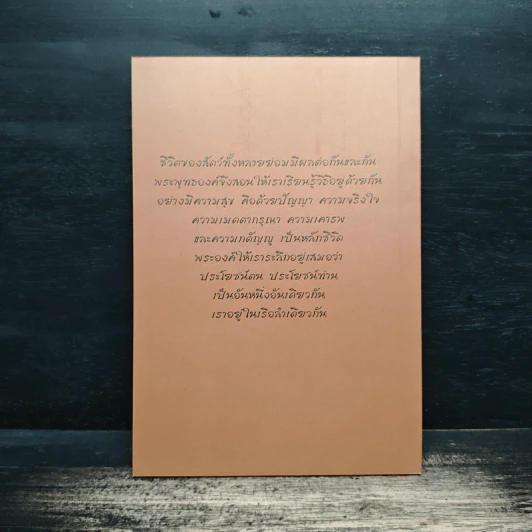 ชีวิตของสัตว์ทั้งหลายย่อมมีผลต่อกันและกัน
พระพุทธองค์จึงสอนให้เราเรียนรู้วิธีอยู่ด้วยกัน
อย่างมีความสุข คือด้วยปัญญา ความจริงใจ
ความเมตตากรุณา ความเคารพ
และความกตัญญู เป็นหลักชีวิต
พระองค์ให้เราระลึกอยู่เสมอว่า
ประโยชน์ตน ประโยชน์ท่าน
เป็นอันหนึ่งอันเดียวกัน
เราอยู่ในเรือลำเดียวกัน